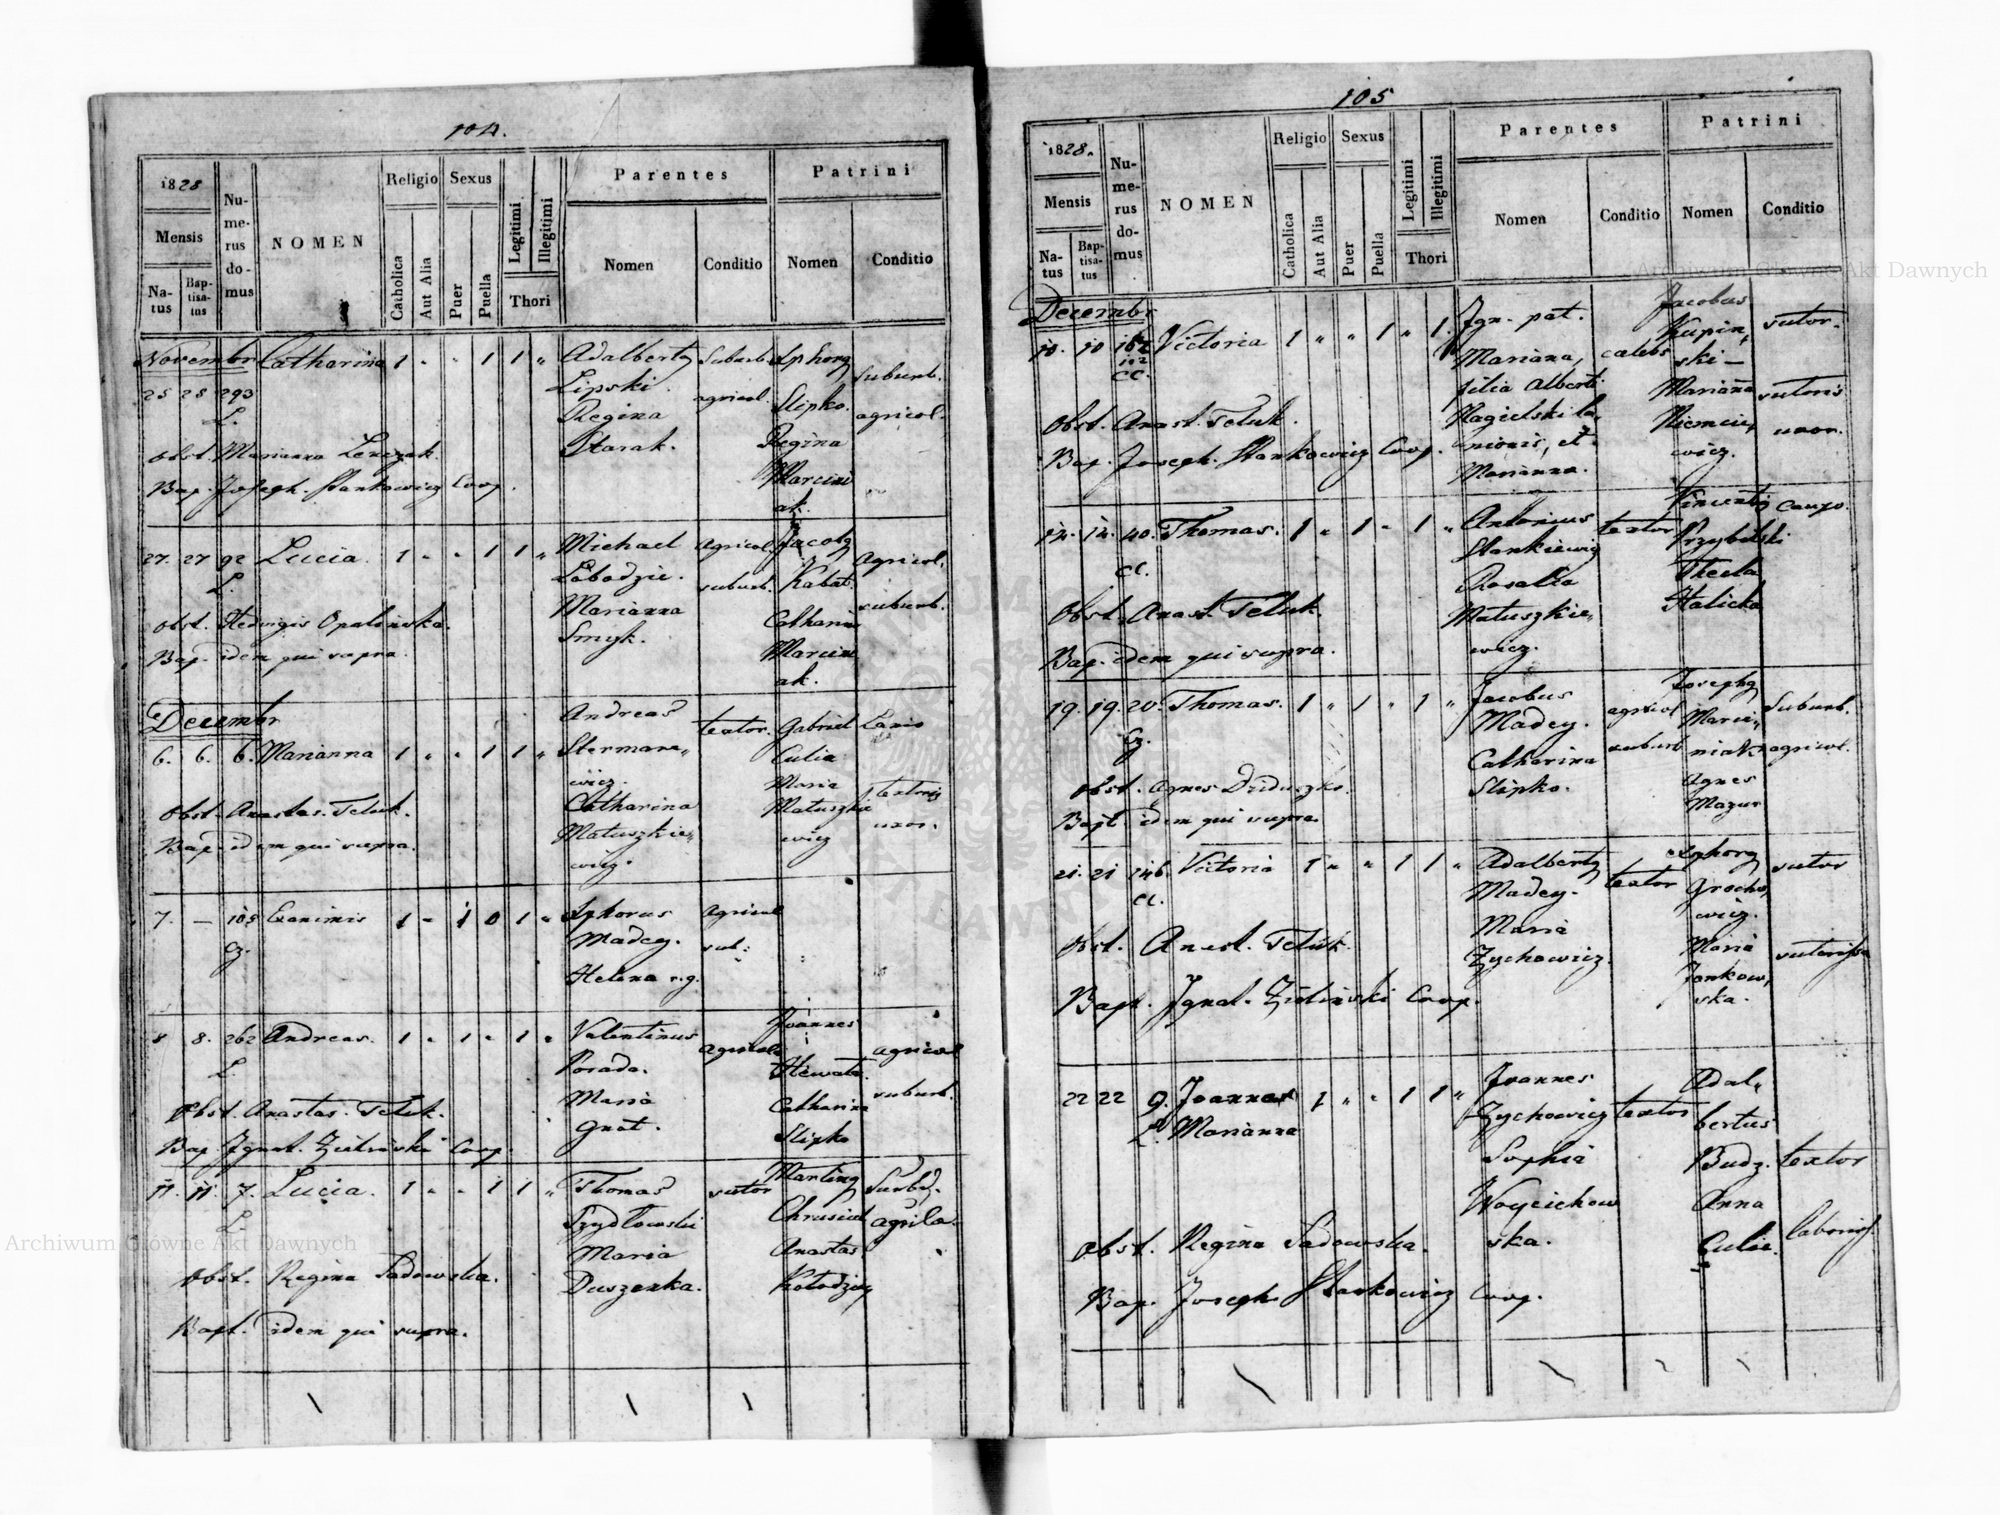 104.
1828
Mensis
Na-
tus
Bap-
tisa-
tus
Nu-
me-
rus
do-
mus
NOMEN
Religio
Catholica
Aut Alia
Sexus
Puer
Puella
Legitimi
Illegitimi
Thori
Parentes
Nomen
Conditio
Patrini
Nomen
Conditio
Novembr Catharina 1 " " 1 1 "
25 28 293
L.
Adalbertg
Lipski
Regina
Starak.
Suburb.
agricol.
Slipko.
Regina
Marcini
ak.
suburb.
agricol.
Obst. Marianna Lenczak.
Bap. Joseph. Stankowicz Coop.
27. 27 92 Lucia. 1 " " 1 1 "
L.
Michael
Lobodzic.
Marianna
Smyk.
Agricol.
suburb.
Jacobg
Kabat.
Catharina
Marcini
ak.
Agricol.
suburb.
Obst. Hedvigis Opalinska.
Bap. idem qui supra.
Decembr
6. 6. 6. Marianna 1 " " 1 1 "
Andreas
wicz.
Catharina
Matuszkie„
wicz.
textor.
Gabriel
Culia
Maria
Matuszkie
wicz
Lanio
textoris
uxor.
Obst. Anastas. Teluk.
Bap. idem qui supra.
7. — 105 1 " 1 0 1 "
Cz.
Madey.
Helena r.g.
Agricol
sub:
8 8. 262 Andreas. 1 " 1 " 1 "
L.
Valentinus
Porada.
Maria
Gnat.
agricola
Joannes
Catharina
Slipko
agricol
suburb.
Obst. Anastas. Teluk.
Bap Ignat. Zielinski Coop.
11. 11. 7. Lucia. 1 " " 1 1 "
L.
Thomas
Szydłowski
Maria
Duszenka.
sutor
Marting
Chrusciel
Anastas
Kołodziey
agrila.
Obst. Regina Sadowska.
Bapt. idem qui supra.
105
1828.
Mensis
Na-
tus
Bap-
tisa-
tus
Nu-
me-
rus
do-
mus
NOMEN
Religio
Catholica
Aut Alia
Sexus
Puer
Puella
Legitimi
Illegitimi
Thori
Parentes
Nomen
Conditio
Patrini
Nomen
Conditio
Decembr
10. 10 162 Victoria 1 " " 1 " 1.
102
CC.
Ign. pat.
Marianna,
filia Alberti
Nagielski la„
nionis, et
Marianna.
caelebs
Jacobus
Kupin„
ski —
Marianna
Niemcie„
wicz.
sutor.
sutoris
uxor.
Obst. Anast. Teluk.
Bap. Joseph. Stankowicz Coop.
12. 12. 40. Thomas. 1 " 1 " 1 "
Cl.
Antonius
Stankiewicz
Rosalia
Matuszkie„
wicz.
textor
Vincentig
Przybilski
Thecla
Halicka
Caupo.
Obst. Anast. Teluk.
Bap. idem qui supra.
19. 19. 20. Thomas. 1 " 1 " 1 "
Cz.
Jacobus
Madey.
Catharina
Slipko.
agricol
suburb
Josephg
Marci„
niak
Agnes
Mazur
Suburb.
agricol.
Obst. Agnes Dziduszko.
Bapt. idem qui supra
21. 21 246. Victoria 1 " " 1 1 "
Cl.
Adalbertg
Madey.
Maria
Zychowicz.
textor
Grocho„
wicz.
Maria
Jankow„
ska.
sutor
Obst. Anast. Teluk.
Bapt. Ignat. Zielinski Coop.
22 22 9. Joannes 1 " " 1 1 "
L. Marianna
Joannes
Zychowicz
Sophia
Woyciechow
ska.
textor
Adal„
bertus
Budz.
Anna
Culic.
textor
Obst. Regina Sadowska.
Bap. Joseph Stankowicz Coop.
Archiwum Główne Akt Dawnych
Archiwum Główne Akt Dawnych